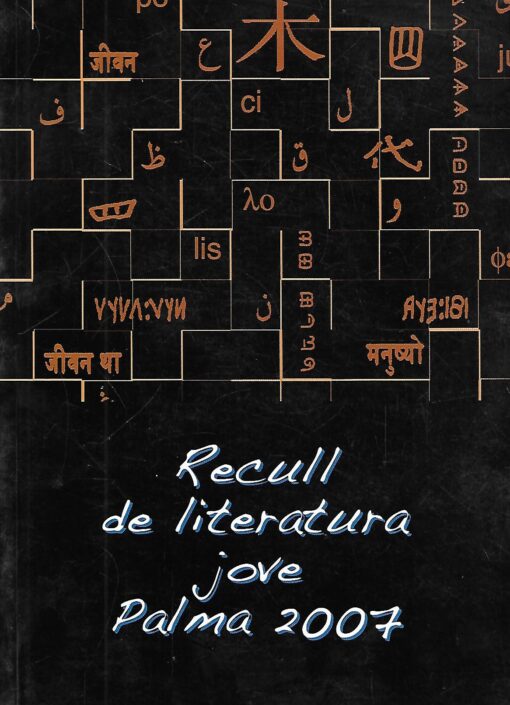 po
जीवन ع 木 四 ju
ف ci ل
ظ ق
λο و
lis φε
ن
जीवन था मनुष्यो
Recull
de literatura
jove
Palma 2007